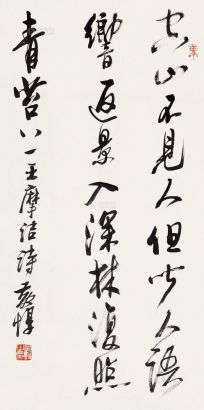 空山不見人但聞人語
響返景入深林復照
青苔上王摩詰詩黃惇